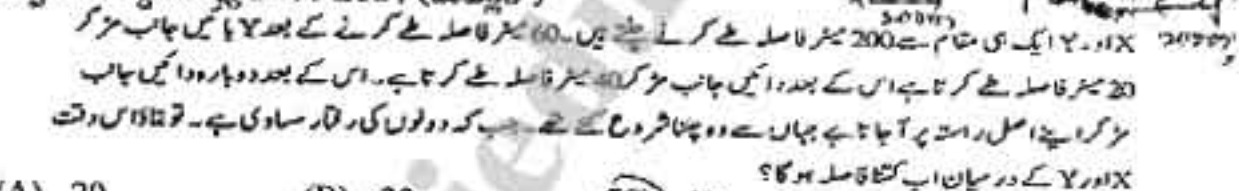 X اور Y ایک ہی مقام سے 200 میٹر فاصلہ طے کرنے چلتے ہیں۔ 60 میٹر فاصلہ طے کرنے کے بعد Y بائیں جانب مڑ کر
20 میٹر فاصلہ طے کرتا ہے اس کے بعد دائیں جانب مڑ کر 40 میٹر فاصلہ طے کرتا ہے۔ اس کے بعد دوبارہ دائیں جانب
مڑ کر اپنے اصل راستہ پر آ جاتا ہے جہاں سے وہ چلنا شروع کئے تھے۔ جب کہ دونوں کی رفتار مساوی ہے۔ تو بتاؤ اس وقت
X اور Y کے درمیان اب کتنا فاصلہ ہو گا؟
(A) 20